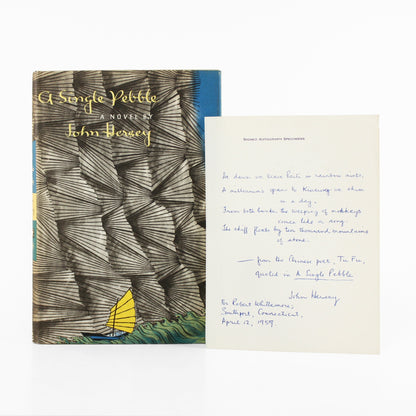 A Single Pebble
A NOVEL BY
John Hersey
SIGNED AUTOGRAPH SPECIMENS
At dawn we leave Paiti in rainbow mists,
A millennium's span to we skim
in a day.
From both banks the weeping of monkeys
comes like a song.
The skiff floats by ten thousand mountains
of stone.
— from the Chinese poet, Tu Fu,
quoted in A Single Pebble
John Hersey
To Robert Whittemore,
Southport, Connecticut,
April 12, 1959.